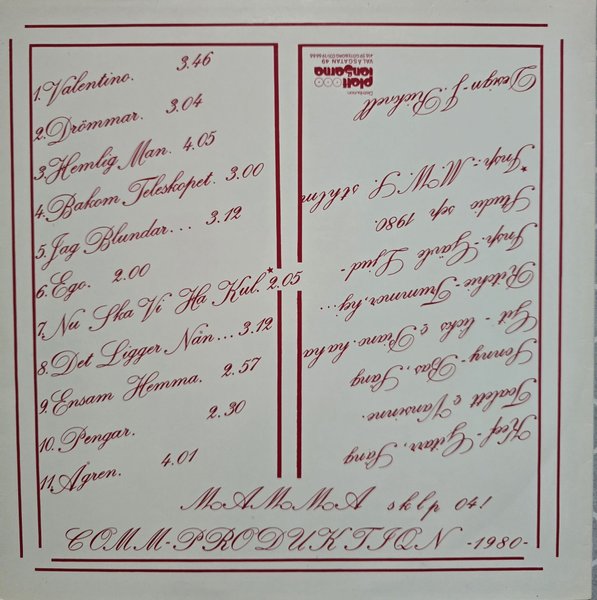 1. Valentino. 3.46
2. Drömmar. 3.04
3. Hemlig Man. 4.05
4. Bakom Teleskopet. 3.00
5. Jag Blundar... 3.12
6. Ego. 2.00
7. Nu Ska Vi Ha Kul.* 2.05
8. Det Ligger Nån... 3.12
9. Ensam Hemma. 2.57
10. Pengar. 2.30
11. Ågren. 4.01
Keef - Gitarr, Sång
Toalett & Vansinne.
Sonny - Bas, Sång
Git - licks & Piano. ha ha
Ritchie - Trummor, hy...
Insp.- Gävle Ljud-
Studio sep 1980.
*Insp.- M.W.S. sthlm
Design - J. Ricknell
Distribution:
platt
langarna
VALÅSGATAN 49
MAMMA 041
COMM-PRODUKTION -1980-